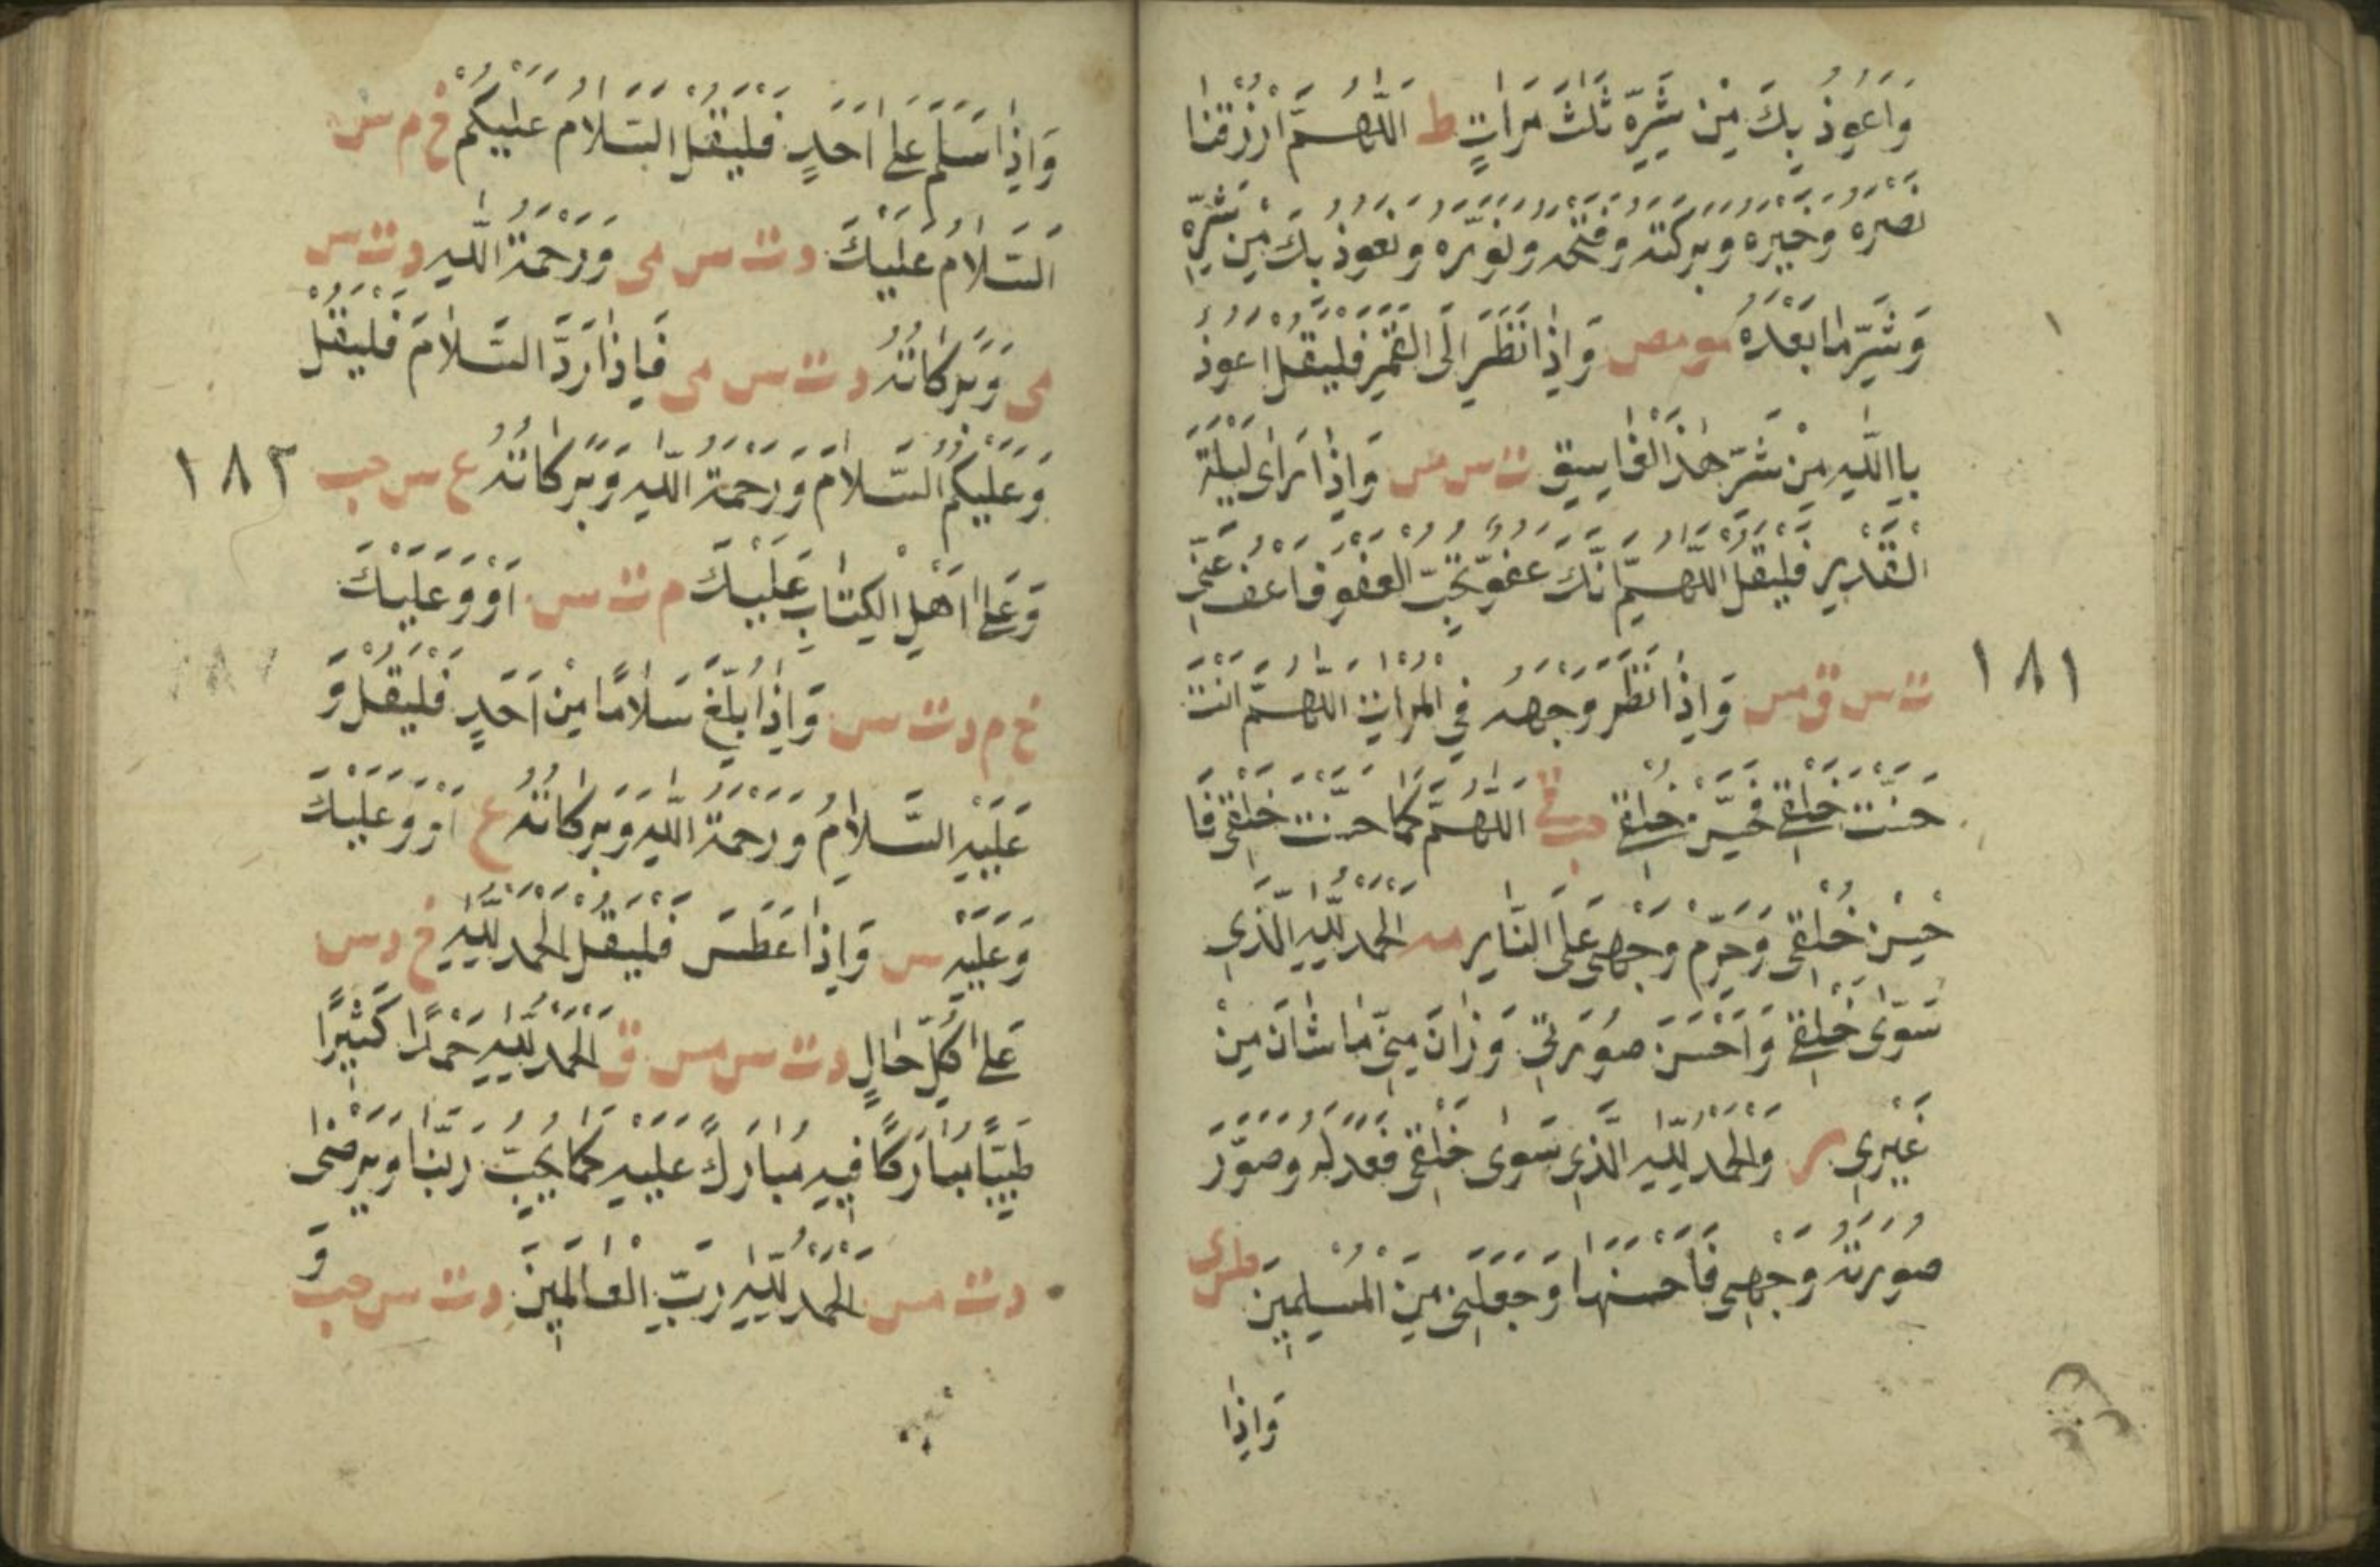 وَاَعُوذُ بِكَ مِنْ شَرِّهِ ثَلٰثَ مَرَاتٍ ط اَللّٰهُمَّ ارْزُقْنَا
نَصْرَهُ وَخَيْرَهُ وَبَرَكَتَهُ وَفَتْحَهُ وَنُوَرَهُ وَنَعُوذُ بِكَ مِنْ شَرِّهِ
وَشَرِّ مَا بَعْدَهُ مو مص وَاِذَا نَظَرَ اِلَى الْقَمَرِ فَلْيَقُلْ اَعُوذُ
بِاللّٰهِ مِنْ شَرِّ هٰذَا الْفَاسِقِ ت س مس وَاِذَا رَاٰى لَيْلَةَ
الْقَدْرِ فَلْيَقُلْ اَللّٰهُمَّ اِنَّكَ عَفُوٌّ تُحِبُّ الْعَفْوَ فَاعْفُ عَنِّي
ت س ق مس وَاِذَا نَظَرَ وَجْهَهُ فِي الْمِرْاٰتِ اَللّٰهُمَّ اَنْتَ
حَسَّنْتَ خَلْقِي فَحَسِّنْ خُلُقِي حب مي اَللّٰهُمَّ كَمَا حَسَّنْتَ خَلْقِي فَا
حْسِنْ خُلْقِي وَحَرِّمْ وَجْهِي عَلَى النَّارِ مه اَلْحَمْدُ لِلّٰهِ الَّذِي
سَوّٰى خَلْقِي وَاَحْسَنَ صُورَتِي وَزَانَ مِنِّي مَا شَانَ مِنْ
غَيْرِي ر وَالْحَمْدُ لِلّٰهِ الَّذِي سَوّٰى خَلْقِي فَعَدَّلَهُ وَصَوَّرَ
صُورَةَ وَجْهِي فَاَحْسَنَهَا وَجَعَلَنِي مِنَ الْمُسْلِمِينَ طس ى
وَاِذَا
١٨١
وَاِذَا سَلَّمَ عَلٰى اَحَدٍ فَلْيَقُلْ السَّلَامُ عَلَيْكُمْ خ م س
اَلسَّلَامُ عَلَيْكَ د ت س مى وَرَحْمَةُ اللّٰهِ د ت س
مى وَبَرَكَاتُهُ د ت س مى فَاِذَا رَدَّ السَّلَامَ فَلْيَقُلْ
وَعَلَيْكُمُ السَّلَامَ وَرَحْمَةُ اللّٰهِ وَبَرَكَاتُهُ ع س حب
وَعَلٰى اَهْلِ الْكِتَابِ عَلَيْكَ م ت س اَوْ وَعَلَيْكَ
خ م د ت س وَاِذَا بُلِّغَ سَلَامًا مِنْ اَحَدٍ فَلْيَقُلْ وَ
عَلَيْهِ السَّلَامُ وَرَحْمَةُ اللّٰهِ وَبَرَكَاتُهُ ع اَوْ وَعَلَيْكَ
وَعَلَيْهِ س وَاِذَا عَطَسَ فَلْيَقُلْ اَلْحَمْدُ لِلّٰهِ خ د س
عَلٰى كُلِّ حَالٍ د ت س مس ق اَلْحَمْدُ لِلّٰهِ حَمْدًا كَثِيرًا
طَيِّبًا مُبَارَكًا فِيهِ مُبَارَكً عَلَيْهِ كَمَا يُحِبُّ رَبَّنَا وَيَرْضٰى
د ت س اَلْحَمْدُ لِلّٰهِ رَبِّ الْعَالَمِينَ د ت س حب وَ
١٨٢